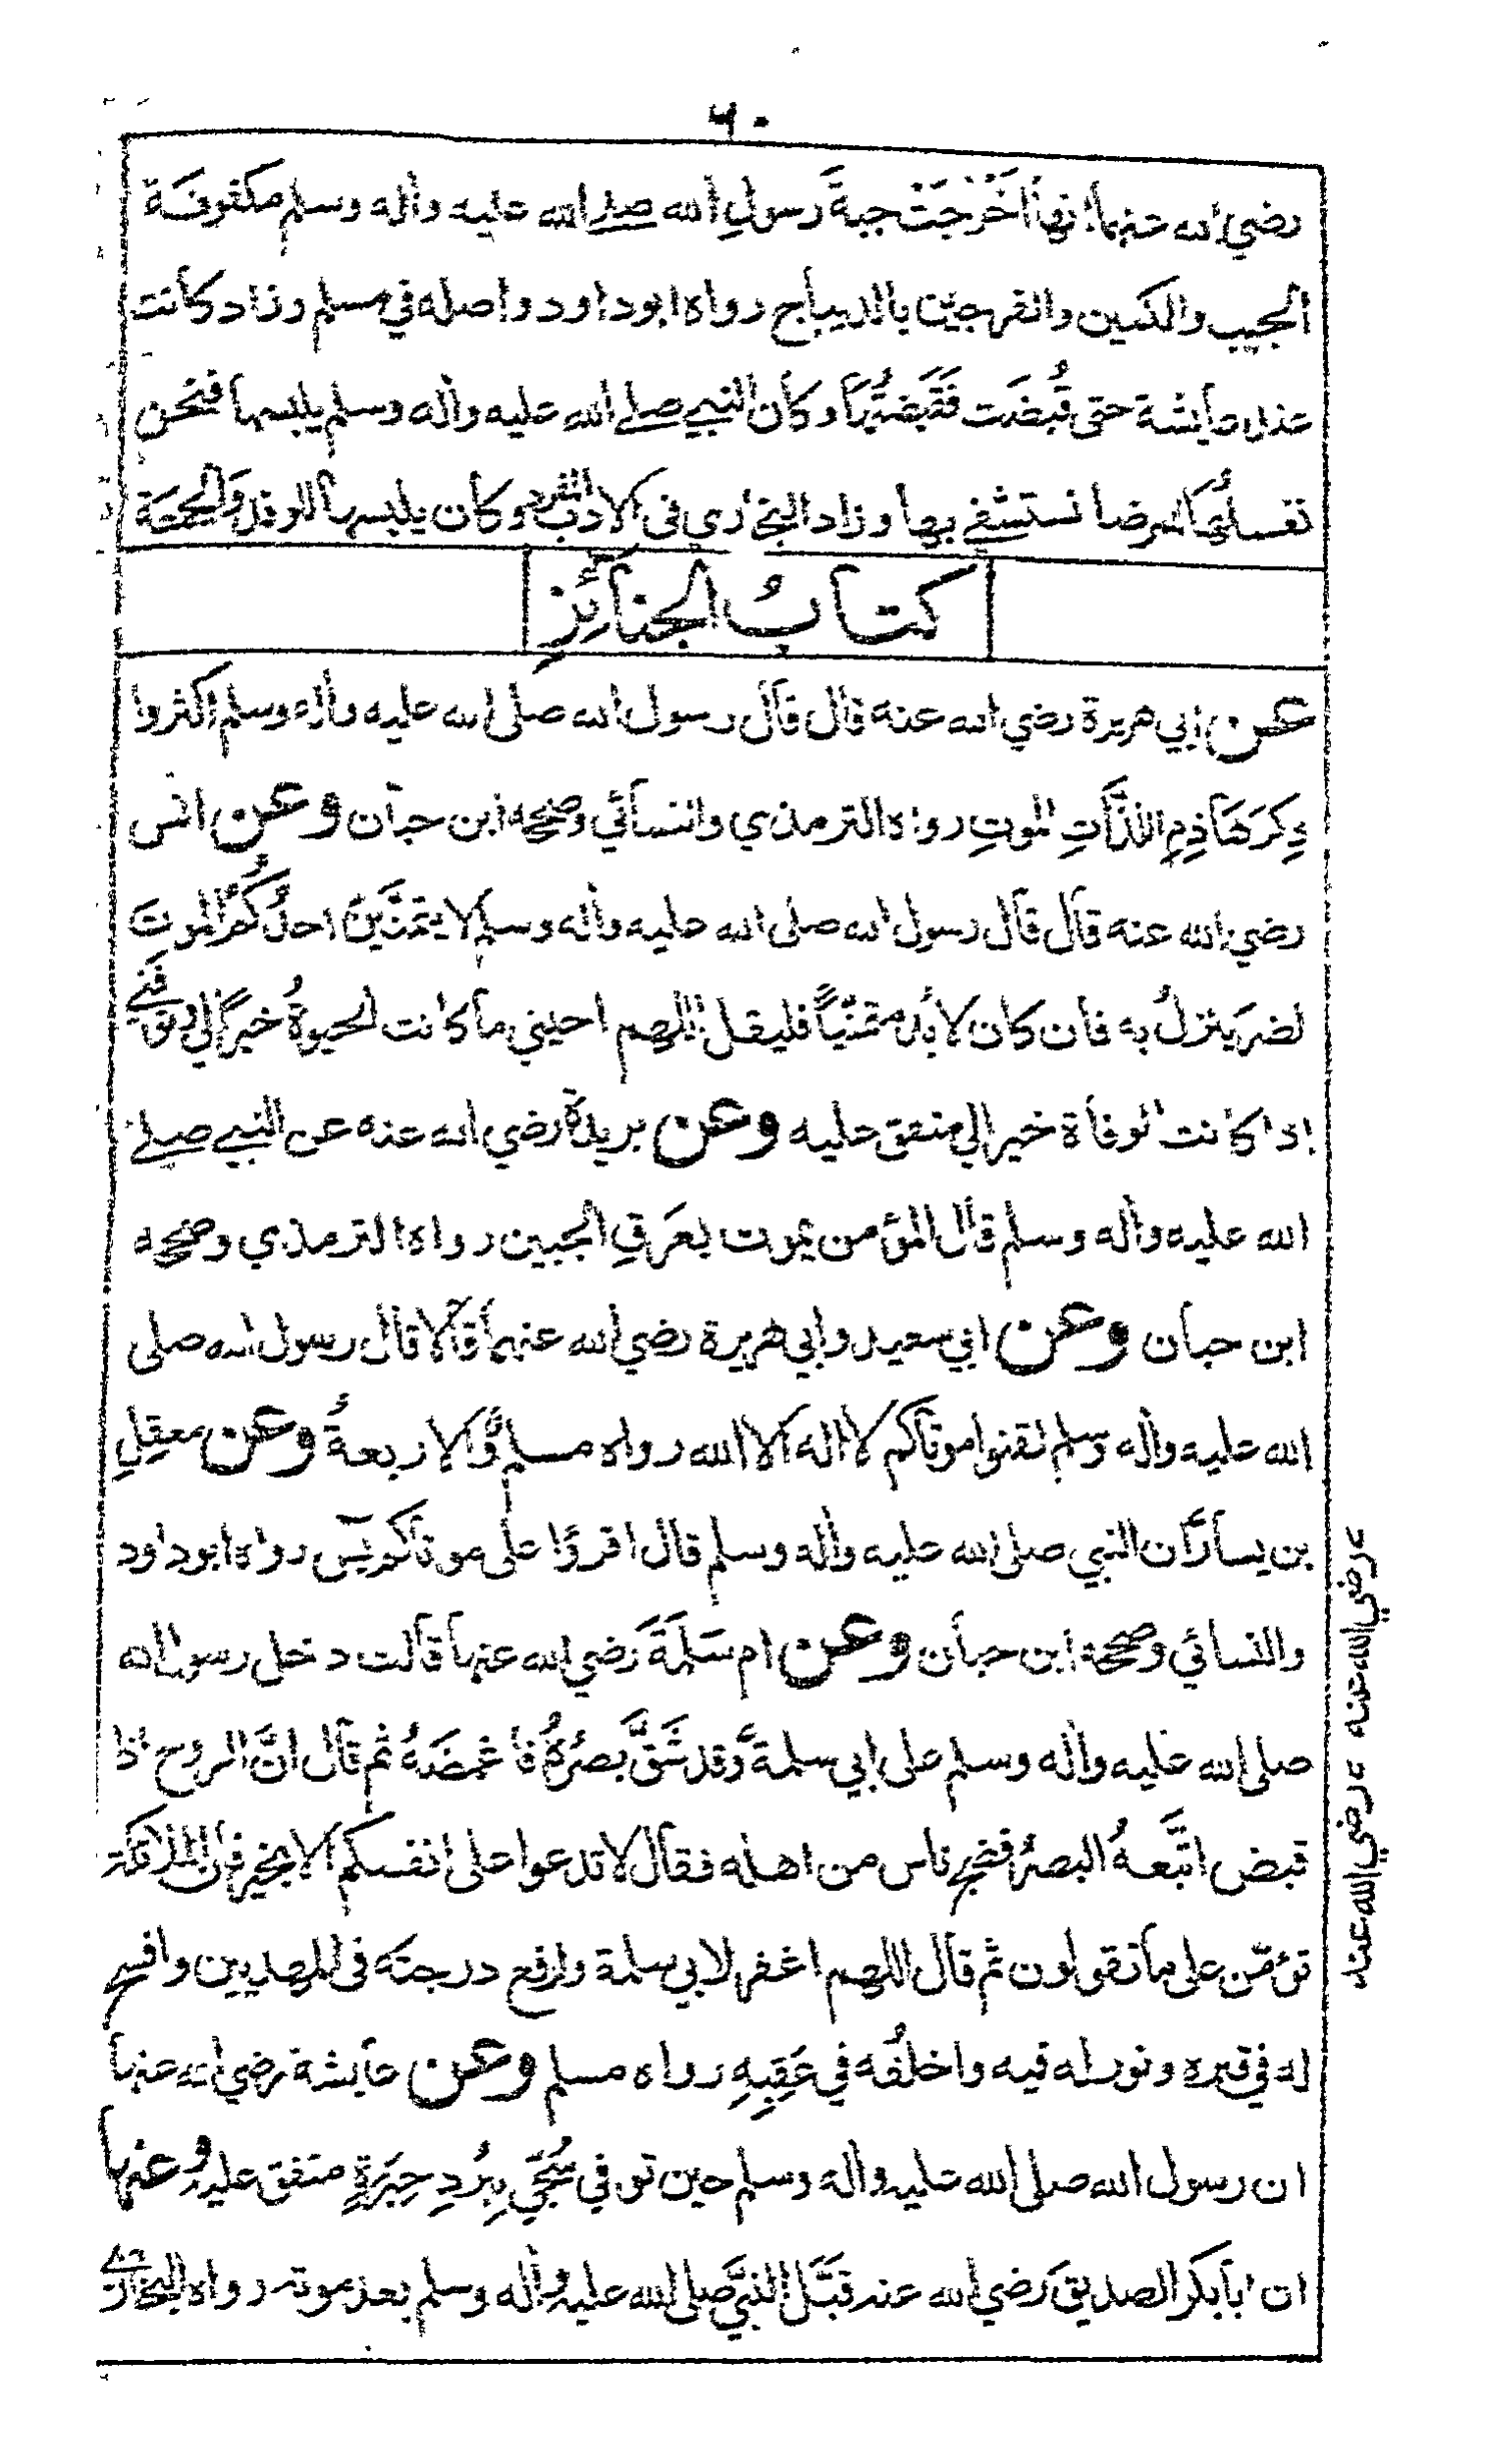 ٦٠
رضي الله عنهما انها أَخْرَجَتْ جبةَ رسولِ الله صلى الله عليه واٰله وسلم مكفوفة
الجيب والكمين والفرجين بالديباج رواه ابوداود واصله في مسلم وزاد كانت
عند عايشة حتى قُبِضَت فَقَبَضْتُهَا وكان النبي صلى الله عليه واٰله وسلم يلبسها فنحن
نغسلُها للمرضا نستشفى بها وزاد البخاري فى الادب المفرد وكان يلبسها للوفد وَالجمعَة
كتابُ الجنائِزِ
عن ابي هريرة رضي الله عنه قال قال رسول الله صلى الله عليه واٰله وسلم اكثروا
ذِكرَ هَاذِمِ اللَّذَّاتِ الموتِ رواه الترمذي والنسائي وصححه ابن حبان وعن انس
رضي الله عنه قال قال رسول الله صلى الله عليه واٰله وسلم لا يتمَنَّيَنَّ احدُكُم الموتَ
لضر يَنزلُ به فان كان لا بُد متمنّياً فليقل اللهم احيني ما كانت الحيوةُ خيراً لي وتوَفَّنِي
اذا كانت الوفاة خيرا لي متفق عليه وعن بريدة رضي الله عنه عن النبي صلى
الله عليه واٰله وسلم قال المؤمن يموت بعَرَقِ الجبين رواه الترمذي وصححه
ابن حبان وعن ابي سعيد وابي هريرة رضي الله عنهما قالا قال رسول الله صلى
الله عليه واٰله وسلم لقنوا موتاكم لا اله الا الله رواه مسلم والاربعةُ وعن معقِلِ
بن يسار أن النبي صلى الله عليه واٰله وسلم قال اقرؤا على موتاكم يٓس رواه ابوداود
والنسائي وصححه ابن حبان وعن ام سَلَمَةَ رضي الله عنها قالت دخل رسول الله
صلى الله عليه واٰله وسلم على ابي سلمة وقد شَقَّ بصرُهُ فاغمضَهُ ثم قال انَّ الروح اذا
قبض اتَّبعهُ البصرُ فضج ناس من اهله فقال لا تدعوا على انفسكم الا بخير فان الملائكة
تؤمّن على ما تقولون ثم قال اللهم اغفر لابي سلمة وارفع درجته فى المهديين وافسح
له في قبره ونور له فيه واخلُفه في عَقِبِهِ رواه مسلم وعن عايشة رضي الله عنها
ان رسول الله صلى الله عليه واٰله وسلم حين توفي سُجِّي بِبُردِ حِبَرَةٍ متفق عليه وعنها
ان ابابكر الصديق رضي الله عنه قبَّل النبيَّ صلى الله عليه واٰله وسلم بعد موته رواه البخاري
رضي الله عنه
رضي الله عنه